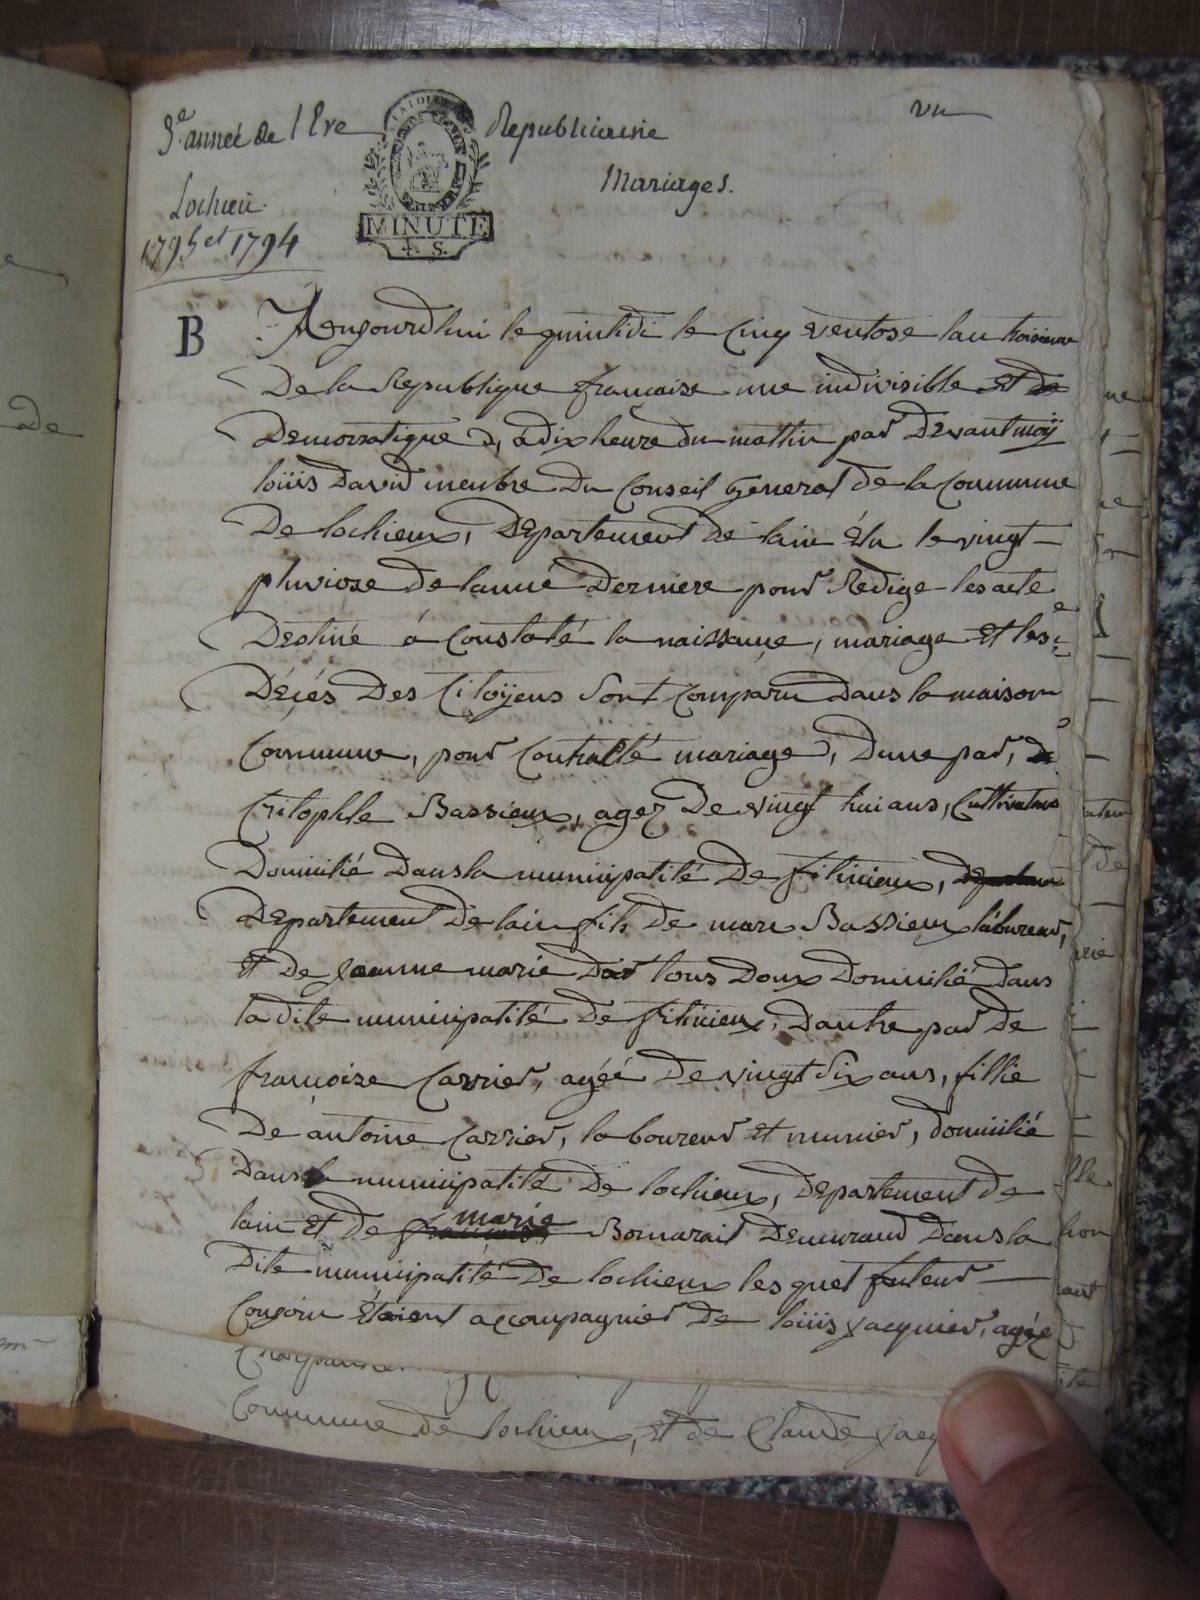 3.e année de l'Ere Republicaine
vu
Mariages.
Lochieu.
1795 et 1794
LA LOI
MINUTE
4. S.
B
Aeujourdhui le quintidi le Cinq ventose lan troisieme
De la Republique francaise une indivisible et de
Democratique, a dix heure du mattin par Devant moÿ
loüis David menbre Du Conseil General de la Commune
De lochieux, Departement De lain élu le vingt
pluviose De lanné Derniere pour Redige les acte
Destiné á Constaté la naissance, mariage et les
Décés Des Citoÿens Sont Comparu Dans la maison
Commune, pour Contracté mariage, Dune par,
Critophle Bassieux, agez De vingt hui ans, Cultivateur
Domicilié Dans la municipalité De fitinieux, departement
Departement De lain fils de marc Bassieux laboureur,
et de Jeanne marie tous Doux Domicilié Dans
la Dite municipalité De fitinieux, Dautre par De
françoise Carrier, agéé De vingt Six ans, fillie
De antoine Carrier, laboureur et munier, domicilié
Dans la municipalité De lochieux, Departement de
lain et de marie Bornarait Demurand Dans la
Dite municipalité De lochieux les quel futeur
Conjoin étoient accompagnier De loüis Jacquier, agéé
Commune de lochieux, et de Claude Jacq